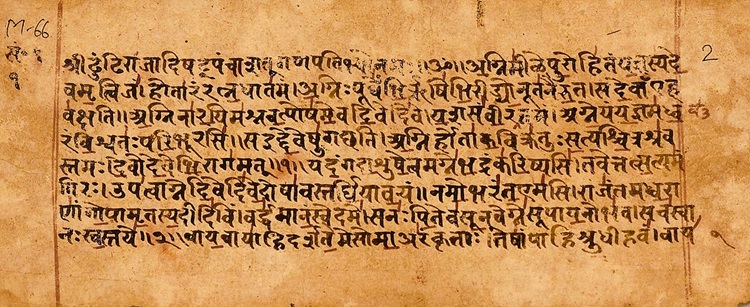 M-66
सं॰ १
१
2
श्री ढुंढिराजादि गणपतिभ्यो नमः ॥ॐ॥ अग्निमीळे पुरोहितं यज्ञस्य दे
वमृत्विजं होतारं रत्नधातमं । अग्निः पूर्वेभिर्ऋषिभिरीड्यो नूतनैरुत । स देवाँ एह
वक्षति ॥ अग्निना रयिमश्नवत्पोषमेव दिवेदिवे । यशसं वीरवत्तमं । अग्ने यं यज्ञमध्व
रं विश्वतः परिभूरसि ॥ स इद्देवेषु गच्छति । अग्निर्होता कविक्रतुः सत्यश्चित्रश्रव
स्तमः । देवो देवेभिरागमत् ॥१॥ यदंग दाशुषे त्वमग्ने भद्रं करिष्यसि । तवेत्तत्सत्यमं
गिरः । उप त्वाग्ने दिवेदिवे दोषावस्तर्धिया वयं ॥ नमो भरंत एमसि । राजंतमध्वरा
णां गोपामृतस्य दीदिविं । वर्धमानं स्वे दमे । स नः पितेव सूनवेग्ने सूपायनो भव । सचस्वा
नः स्वस्तये ॥२॥ वायवायाहि दर्शतेमे सोमा अरंकृताः । तेषां पाहि श्रुधी हवं । वाय